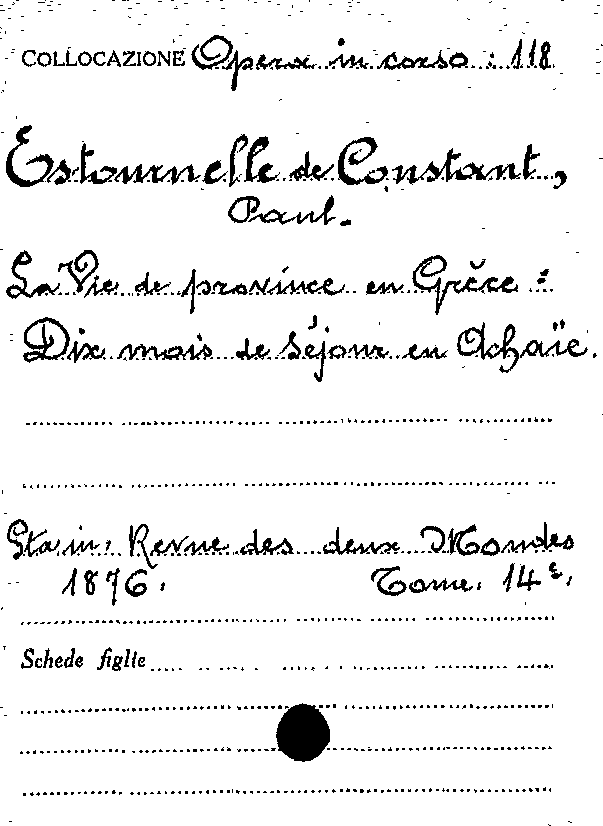 COLLOCAZIONE Opera in corso : 118
Estournelle de Constant,
Paul.
La Vie de province en Grèce :
Dix mois de séjour en Achaïe.
Sta in: Revue des deux Mondes
1876. Tome. 14e.
Schede figlie